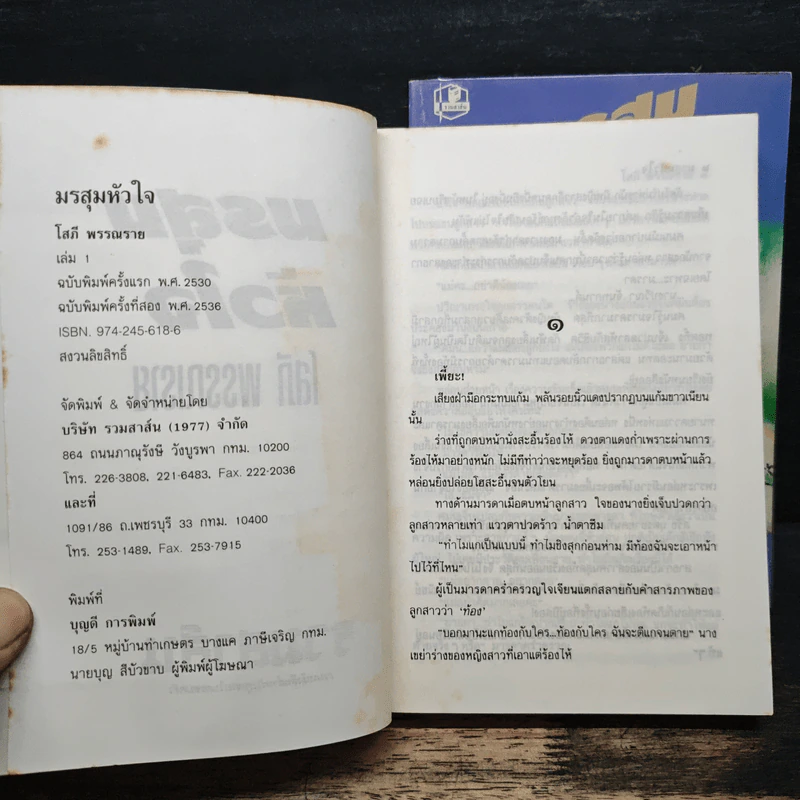 มรสุมหัวใจ
โสภี พรรณราย
เล่ม 1
ฉบับพิมพ์ครั้งแรก พ.ศ. 2530
ฉบับพิมพ์ครั้งที่สอง พ.ศ. 2536
ISBN. 974-245-618-6
สงวนลิขสิทธิ์
จัดพิมพ์ & จัดจำหน่ายโดย
บริษัท รวมสาส์น (1977) จำกัด
864 ถนนภาณุรังษี วังบูรพา กทม. 10200
โทร. 226-3808, 221-6483, Fax. 222-2036
และที่
1091/86 ถ.เพชรบุรี 33 กทม. 10400
โทร. 253-1489, Fax. 253-7915
พิมพ์ที่
บุญดี การพิมพ์
18/5 หมู่บ้านท่าเกษตร บางแค ภาษีเจริญ กทม.
นายบุญ สีบัวขาบ ผู้พิมพ์ผู้โฆษณา
๑
เพี้ยะ!
เสียงฝ่ามือกระทบแก้ม พลันรอยนิ้วแดงปรากฏบนแก้มขาวเนียน
นั้น
ร่างที่ถูกตบหน้านั่งสะอื้นร้องไห้ ดวงตาแดงก่ำเพราะผ่านการ
ร้องไห้มาอย่างหนัก ไม่มีทีท่าว่าจะหยุดร้อง ยิ่งถูกมารดาตบหน้าแล้ว
หล่อนยิ่งปล่อยโฮสะอื้นจนตัวโยน
ทางด้านมารดาเมื่อตบหน้าลูกสาว ใจของนางยิ่งเจ็บปวดกว่า
ลูกสาวหลายเท่า แววตาปวดร้าว น้ำตาซึม
“ทำไมแกเป็นแบบนี้ ทำไมชิงสุกก่อนห่าม มีท้องฉันจะเอาหน้า
ไปไว้ที่ไหน”
ผู้เป็นมารดาคร่ำครวญใจเจียนแตกสลายกับคำสารภาพของ
ลูกสาวว่า ‘ท้อง’
“บอกมานะแกท้องกับใคร...ท้องกับใคร ฉันจะตีแกจนตาย” นาง
เขย่าร่างของหญิงสาวที่เอาแต่ร้องไห้